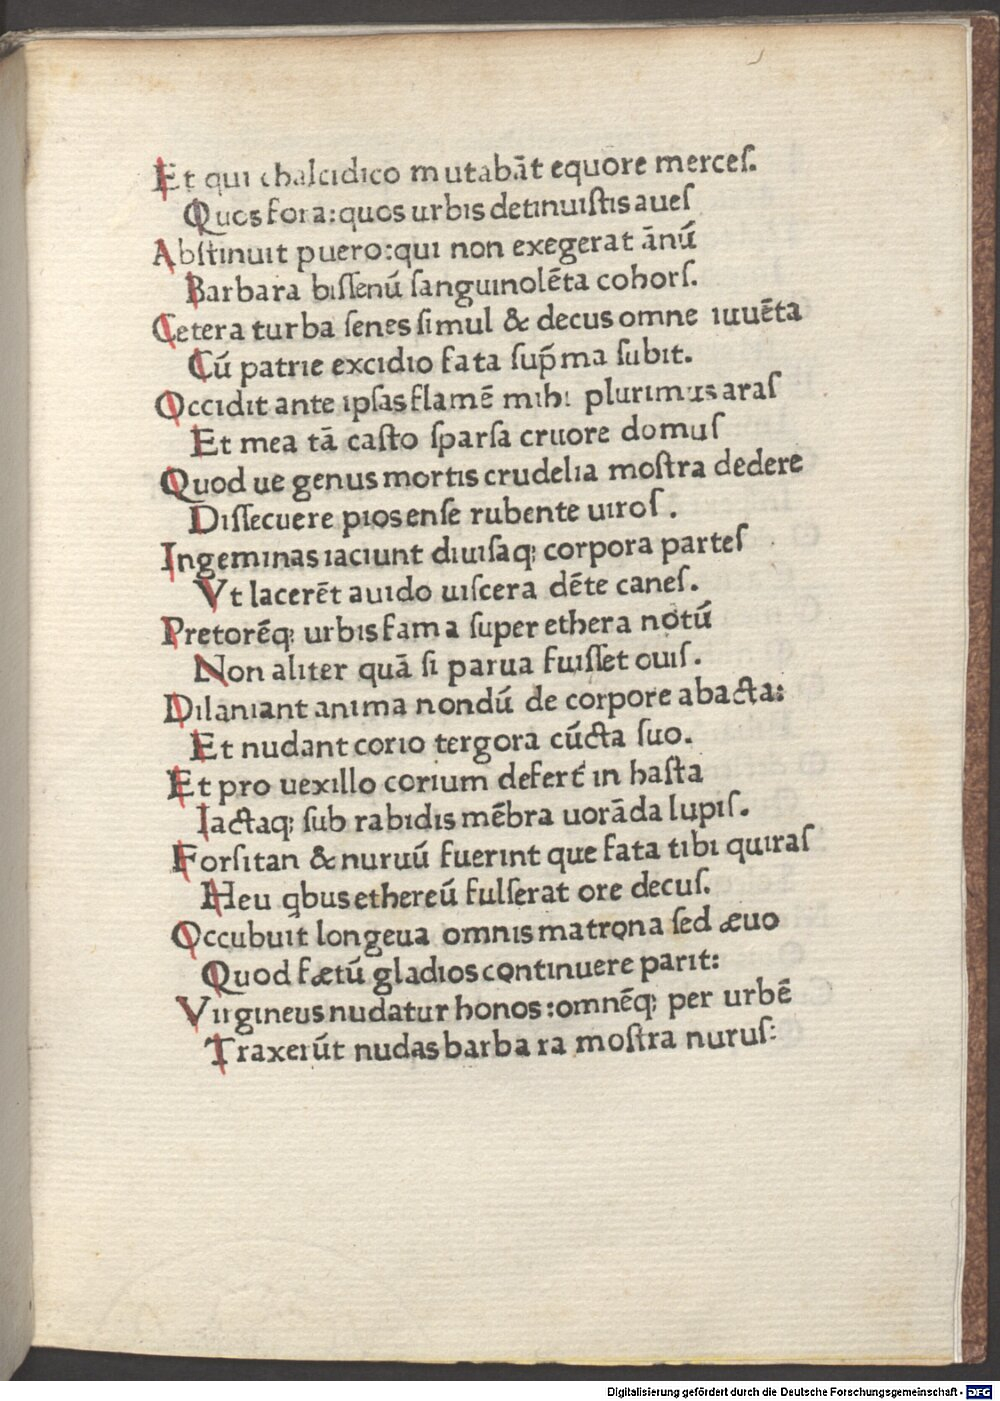 Et qui chalcidico mutabāt equore merceſ.
Quos fora: quos urbis detinuiſtis aueſ
Abſtinuit puero: qui non exegerat ānū
Barbara biſſenū ſanguinolēta cohorſ.
Cetera turba ſenes ſimul & decus omne iuuēta
Cū patrie excidio fata ſup̄ma ſubit.
Occidit ante ipſas flamē mihi plurimus araſ
Et mea tā caſto ſparſa cruore domuſ
Quod ue genus mortis crudelia moſtra dedere
Diſſecuere pios enſe rubente uiroſ.
Ingeminas iaciunt diuiſaq; corpora parteſ
Vt lacerēt auido uiſcera dēte caneſ.
Pretorēq; urbis fama ſuper ethera notū
Non aliter quā ſi parua fuiſſet ouiſ.
Dilaniant anima nondū de corpore abacta:
Et nudant corio tergora cūcta ſuo.
Et pro uexillo corium defert̄ in haſta
Iactaq; ſub rabidis mēbra uorāda lupiſ.
Forſitan & nuruū fuerint que fata tibi quiraſ
Heu qbus ethereū fulſerat ore decuſ.
Occubuit longeua omnis matrona ſed æuo
Quod fætū gladios continuere parit:
Virgineus nudatur honos: omnēq; per urbē
Traxerūt nudas barbara moſtra nuruſ:
Digitalisierung gefördert durch die Deutsche Forschungsgemeinschaft - DFG